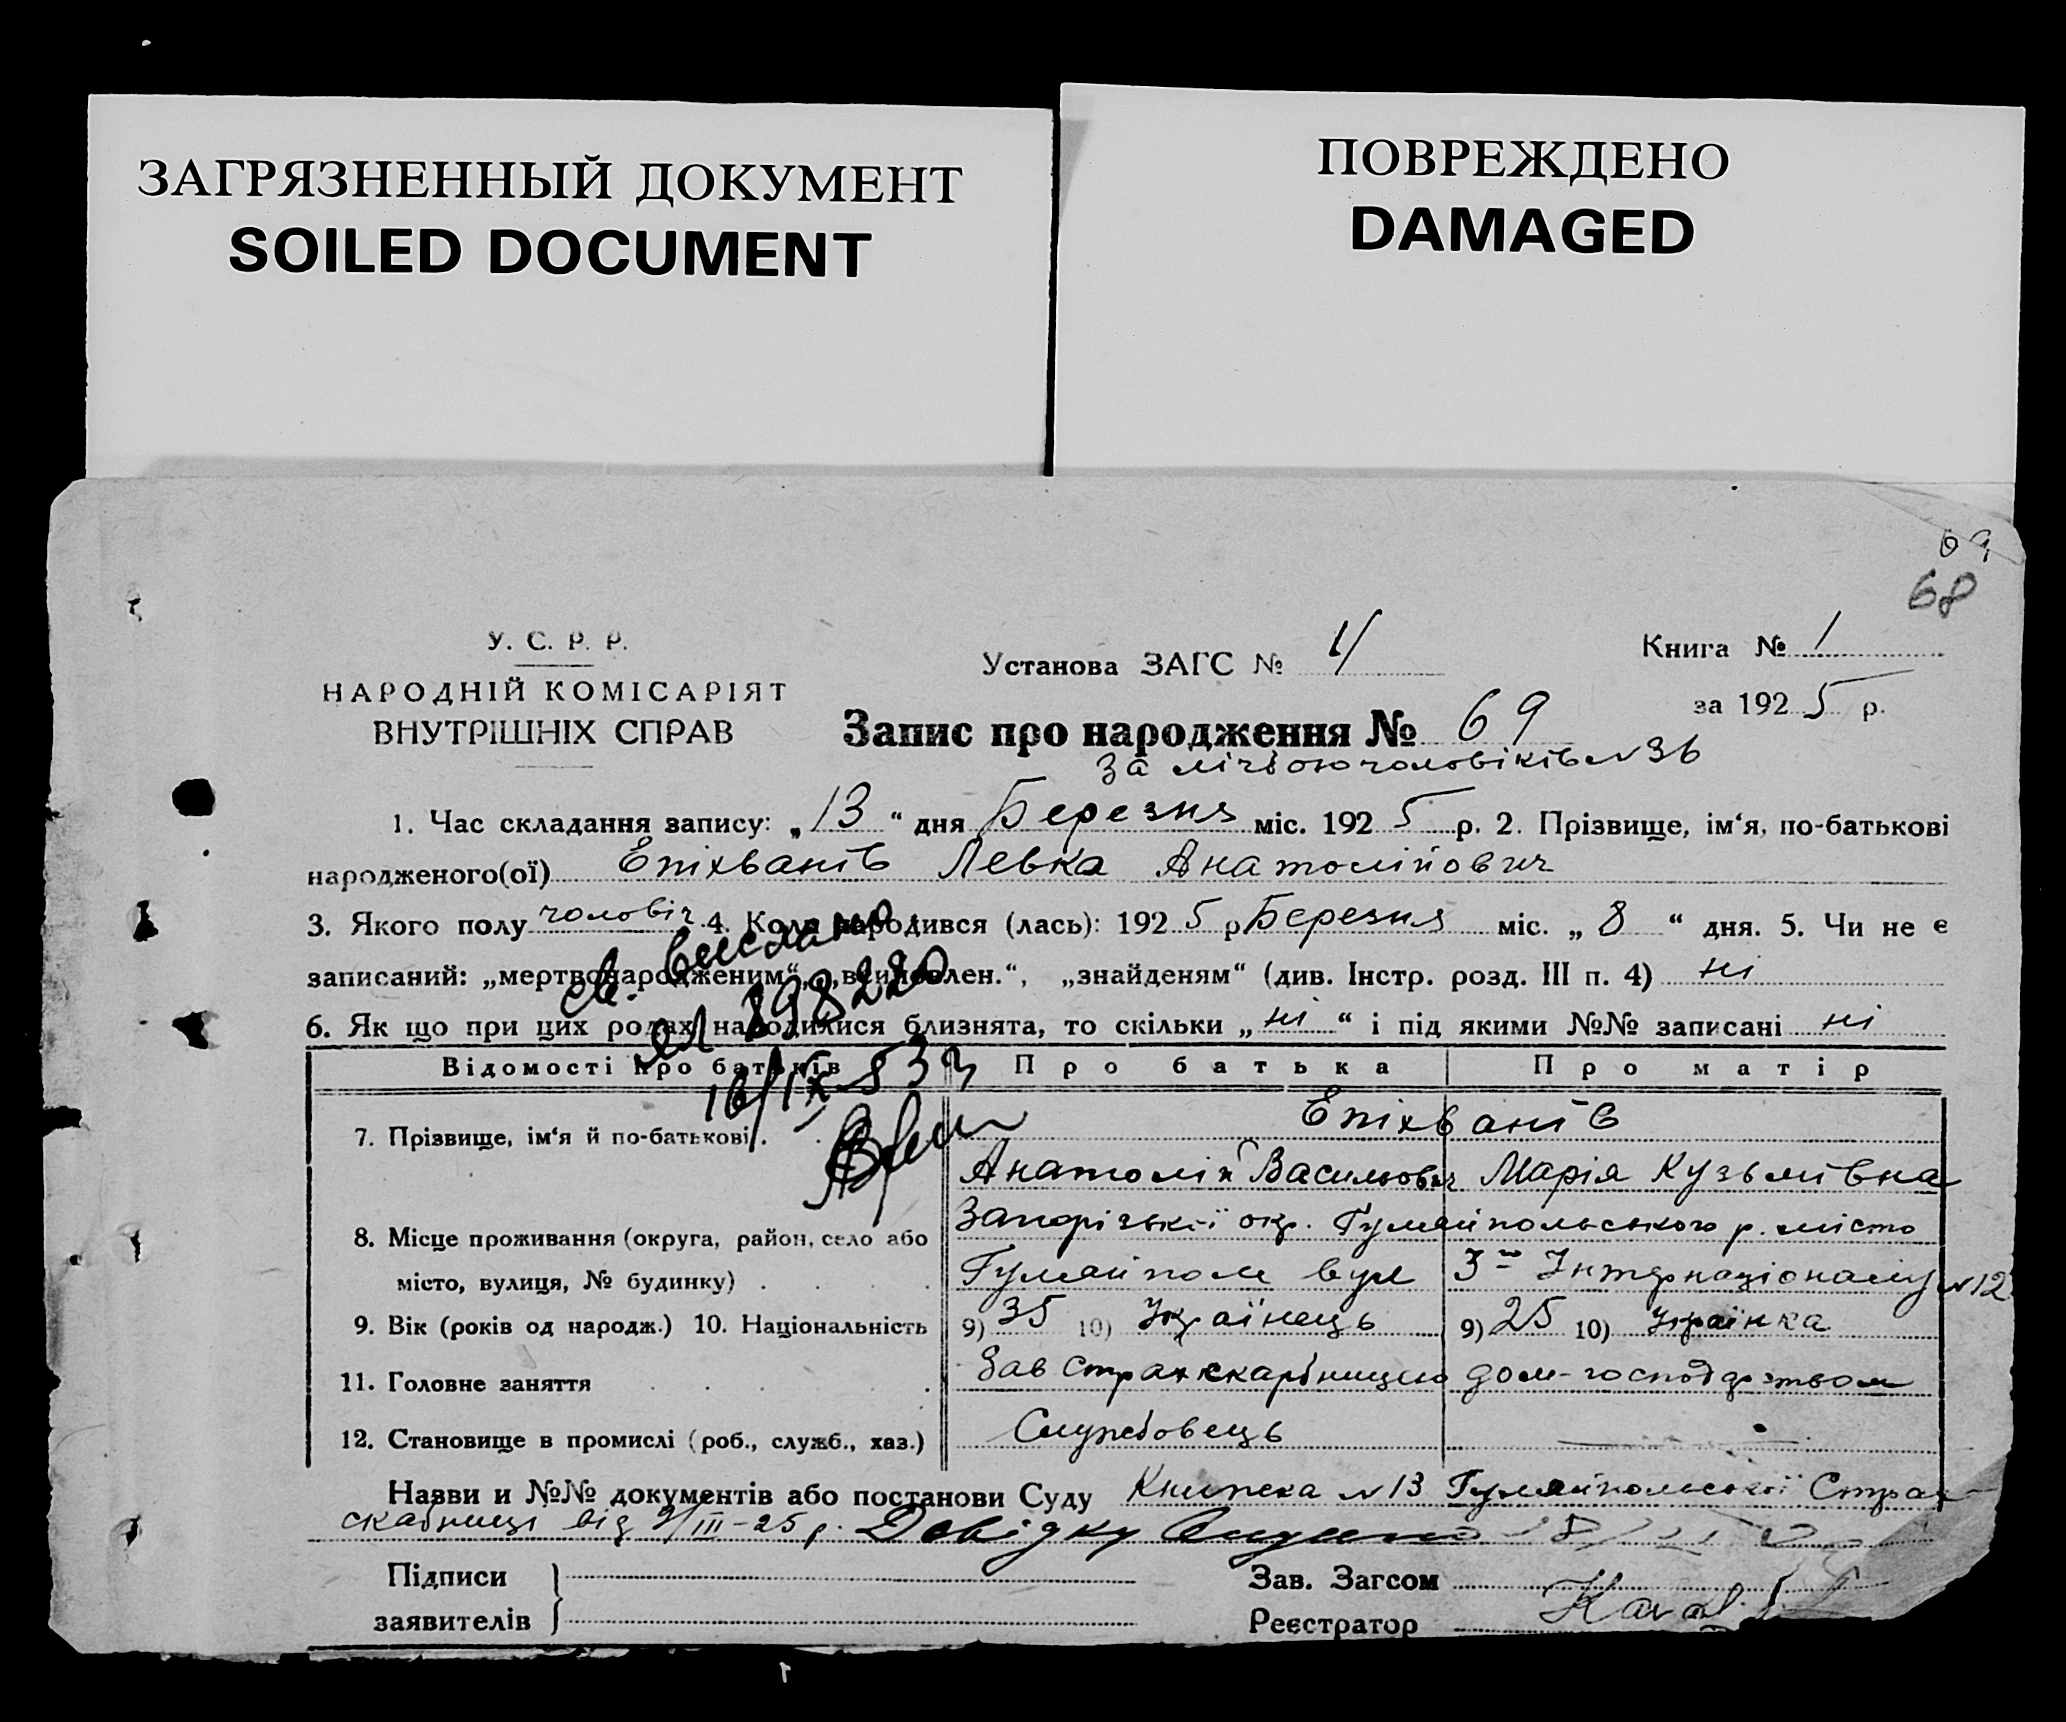 ЗАГРЯЗНЕННЫЙ ДОКУМЕНТ
SOILED DOCUMENT
ПОВРЕЖДЕНО
DAMAGED
69
68
У. С. Р. Р.
НАРОДНІЙ КОМІСАРІЯТ
ВНУТРІШНІХ СПРАВ
Установа ЗАГС № 4
Книга № 1
за 1925 р.
Запис про народження № 69
за лічбою чоловіків N 36
1. Час складання запису: „13“ дня Березня міс. 1925 р. 2. Прізвище, ім‘я, по-батькові
народженого(ої) Епіхванів Левка Анатолійович
3. Якого полу чоловіч 4. Коли народився (лась): 1925 р Березня міс. „8“ дня. 5. Чи не є
записаний: „мертвонародженим“, „всиновлен.“, „знайденям“ (див. Інстр. розд. III п. 4) ні
6. Як що при цих родах народилися близнята, то скільки „ні“ і під якими №№ записані ні
св. выслано
898220
16/IX 53 г
Відомості про батьків Про батька Про матір
7. Прізвище, ім‘я й по-батькові . Епіхванів
Анатолій Васильович Марія Кузьмівна
8. Місце проживання (округа, район, село або Запорізької окр. Гуляйпольського р. місто
місто, вулиця, № будинку) . Гуляйполе вул 3го Інтернаціоналу N 12
9. Вік (років од народж.) 10. Національність 9) 35 10) Українець 9) 25 10) Українка
11. Головне заняття Зав Страхскарбницею дом-господарством
12. Становище в промислі (роб., служб., хаз.) Службовець
Назви и №№ документів або постанови Суду Книжка N 13 Гуляйпольської Страх-
скабниці від 9/III-25 р. Довідку
Підписи
заявителів
Зав. Загсом
Реєстратор